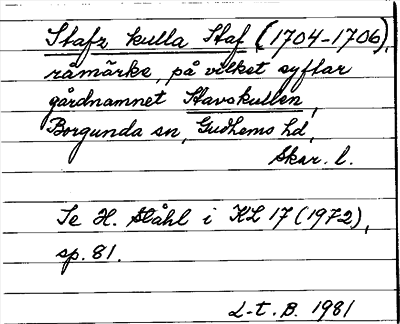 Stafz kulla Staf (1704-1706),
råmärke, på vilket syftar
gårdnamnet Stavskullen,
Borgunda sn, Gudhems hd,
Skar. l.
Se H. Ståhl i KL 17 (1972),
sp. 81.
L-t. B. 1981